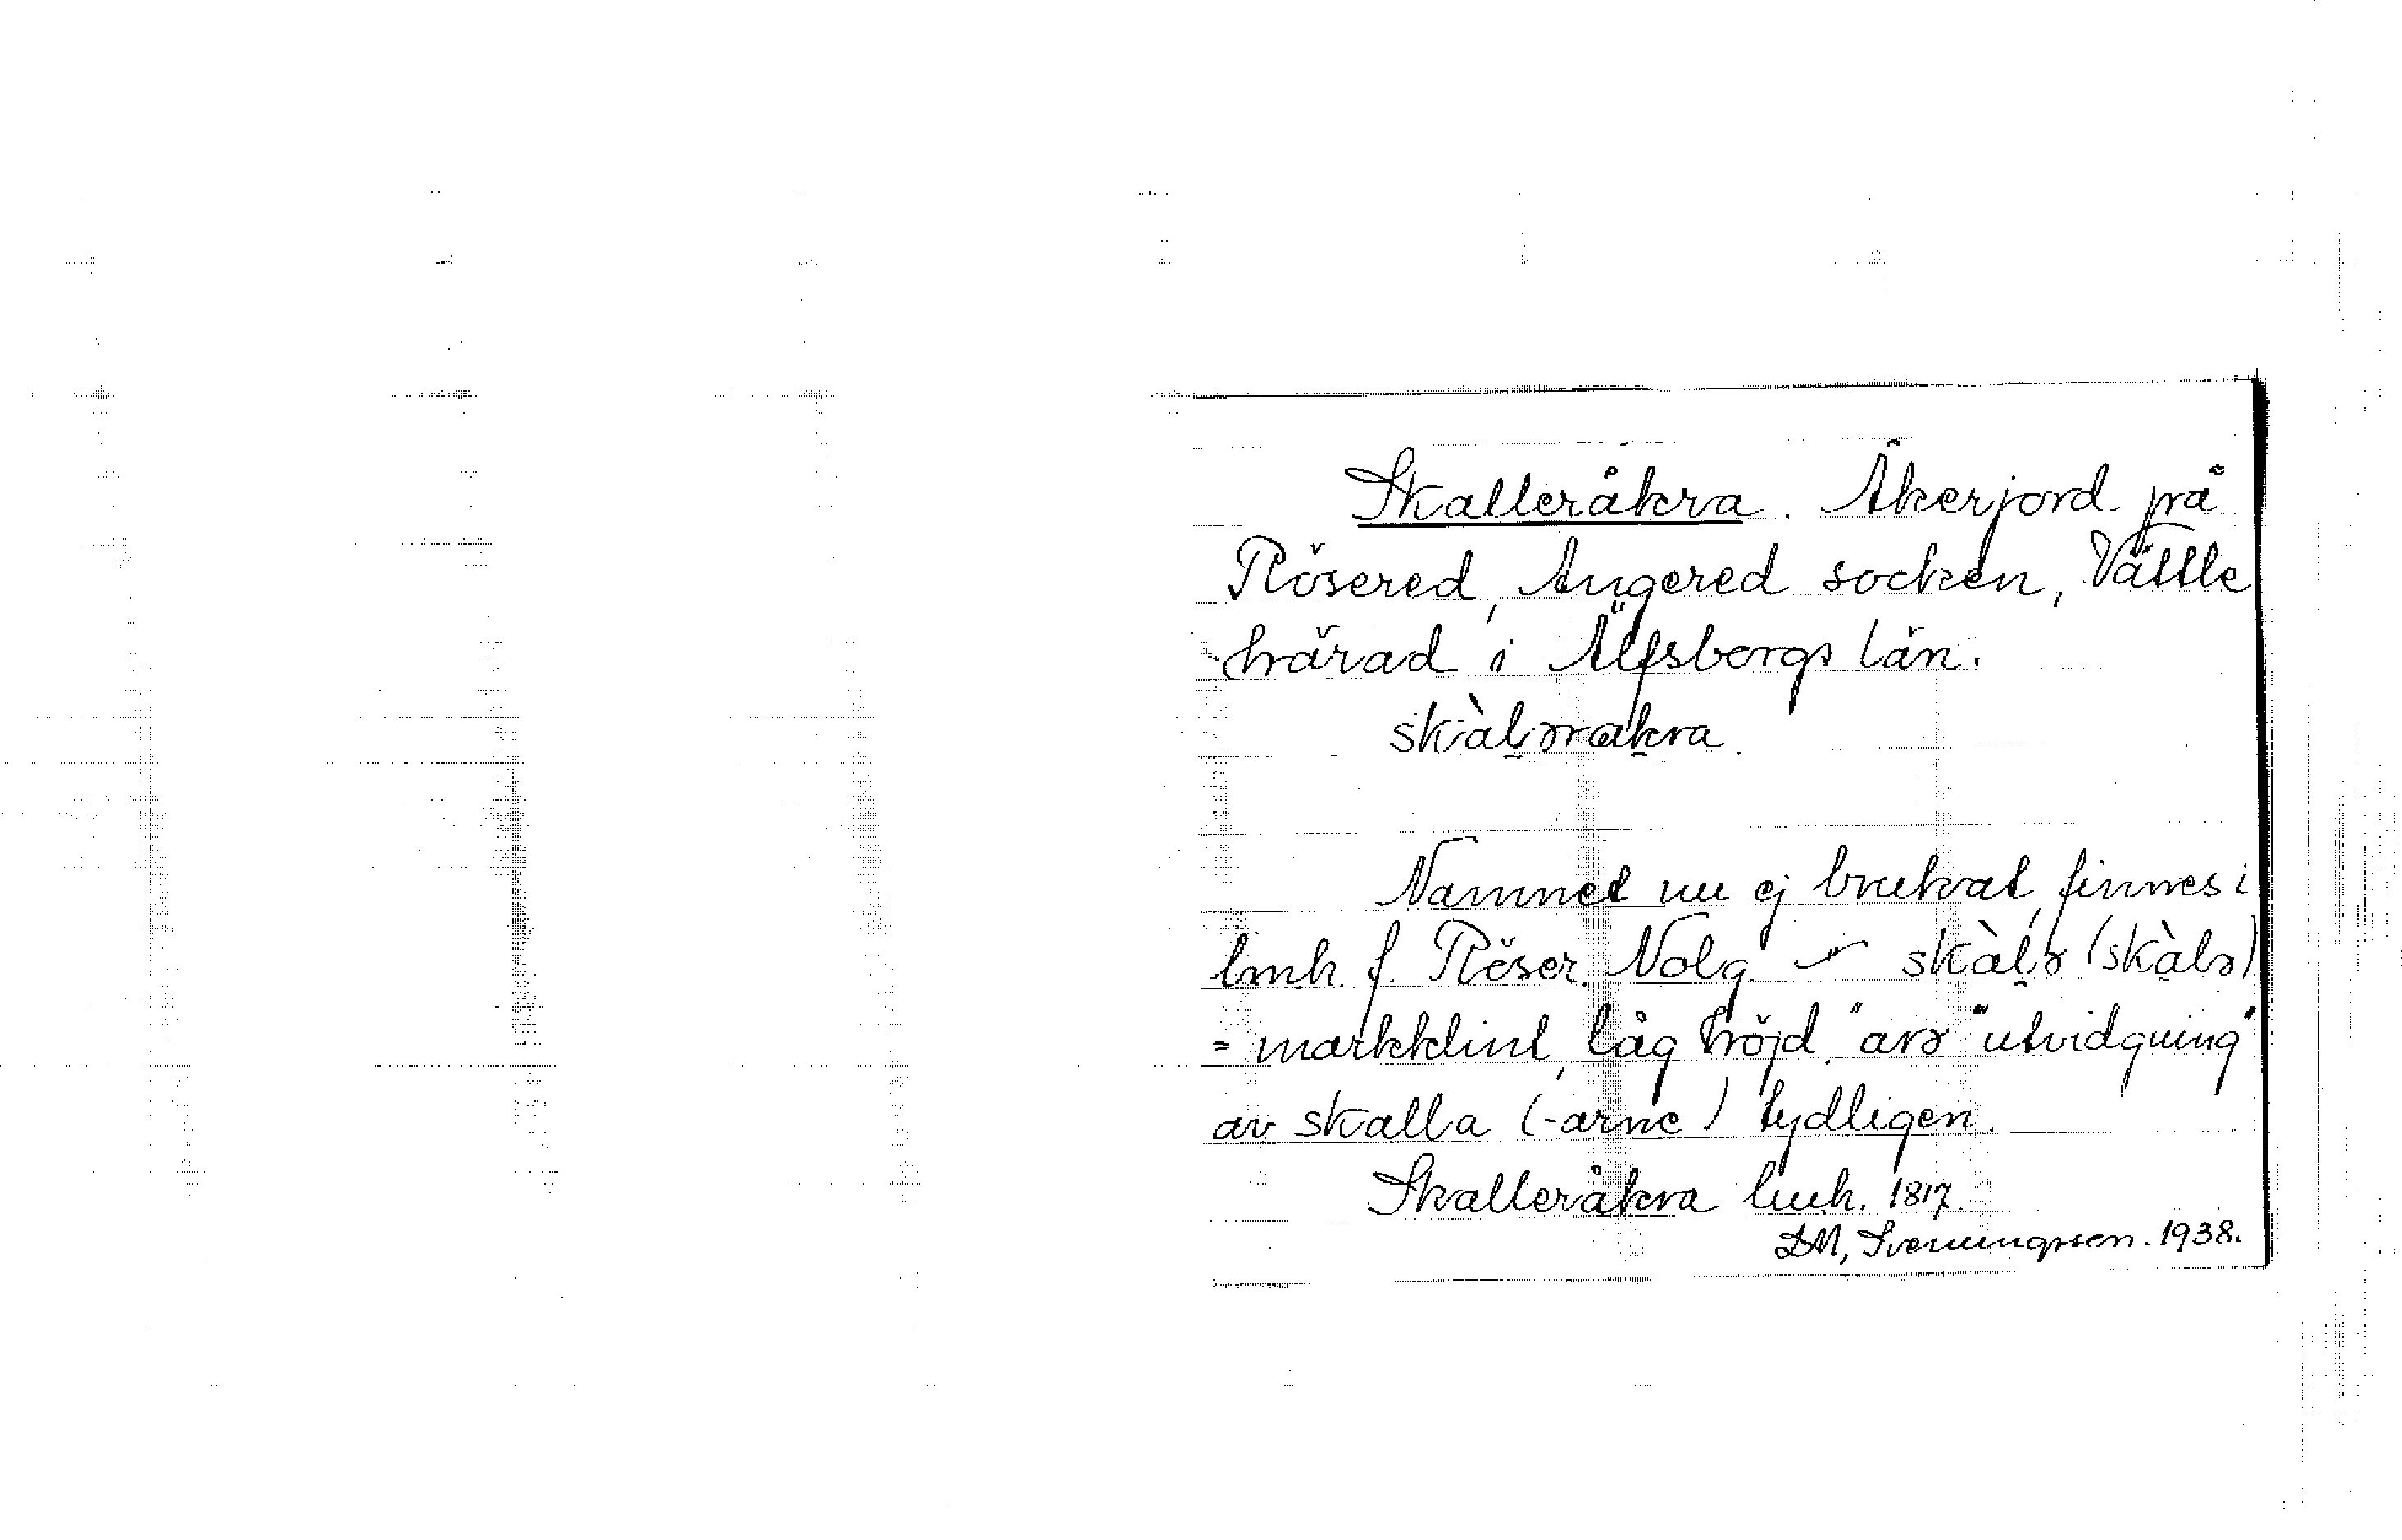 Skalleråkra. Åkerjord på
Rösered, Angered socken, Vättle
härad i Älfsborgs län.
skàlərakra
Namnet nu ej brukat, finnes i
lmh. f. Röser. Nolg. skàlə (skàlə)
= markklint, låg höjd. "arə "utvidgning"
av skalla (-arne) tydligen.
Skalleråkra lmh. 1817.
DM, Svenungsson. 1938.